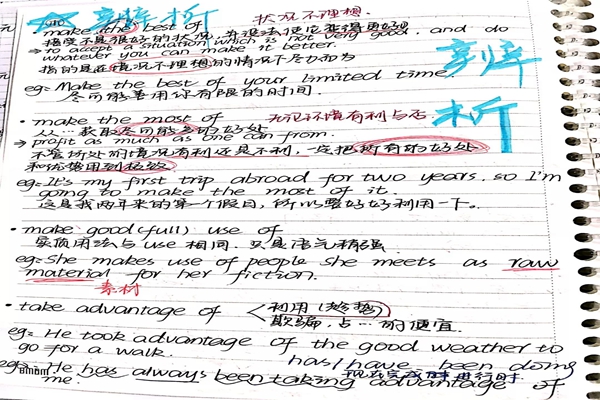 状况不理想.
· make the best of 辨析
接受不是很好的状况,并设法使它变得更好
→ to accept a situation which is not very good, and do
whatever you can make it better.
指的是在情况不理想的情况下尽力而为
eg: Make the best of your limited time.
尽可能善用你有限的时间.
辨析
· make the most of 无论环境有利与否.
从…获取尽可能多的好处
→ profit as much as one can from.
不管所处的情况有利还是不利,一定把所有的好处
eg: It's my first trip abroad for two years. so I'm
going to make the most of it.
这是我两年来的第一个假日,所以要好好利用一下。
· make good(full) use of
用法与use相同.只是语气稍强
eg: She makes use of people she meets as raw
material for her fiction.
素材
· take advantage of 利用(趁势)
欺骗,占…的便宜.
eg: He took advantage of the good weather to
go for a walk.
has/have been doing
现在完成进行时
eg: He has always been taking advantage of
me.